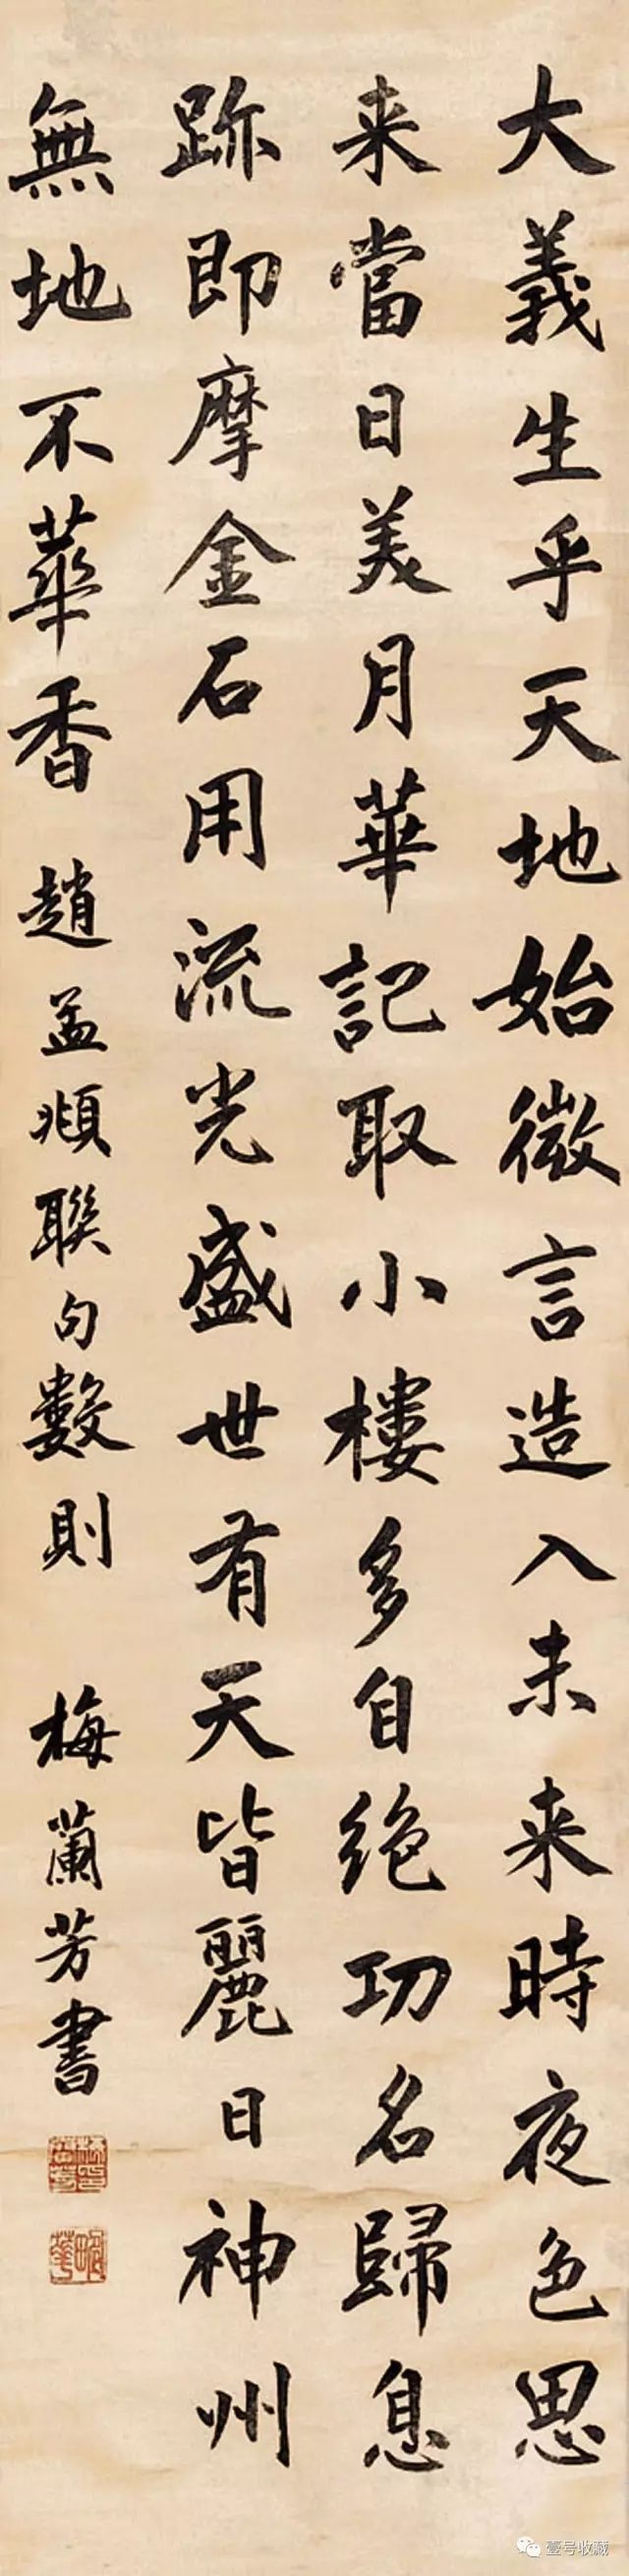 大義生乎天地始微言造入未来時夜色思
来當日美月華記取小樓多自絶功名歸息
跡即摩金石用流光盛世有天皆麗日神州
無地不華香 趙孟頫聯句數則 梅蘭芳書
壹号收藏